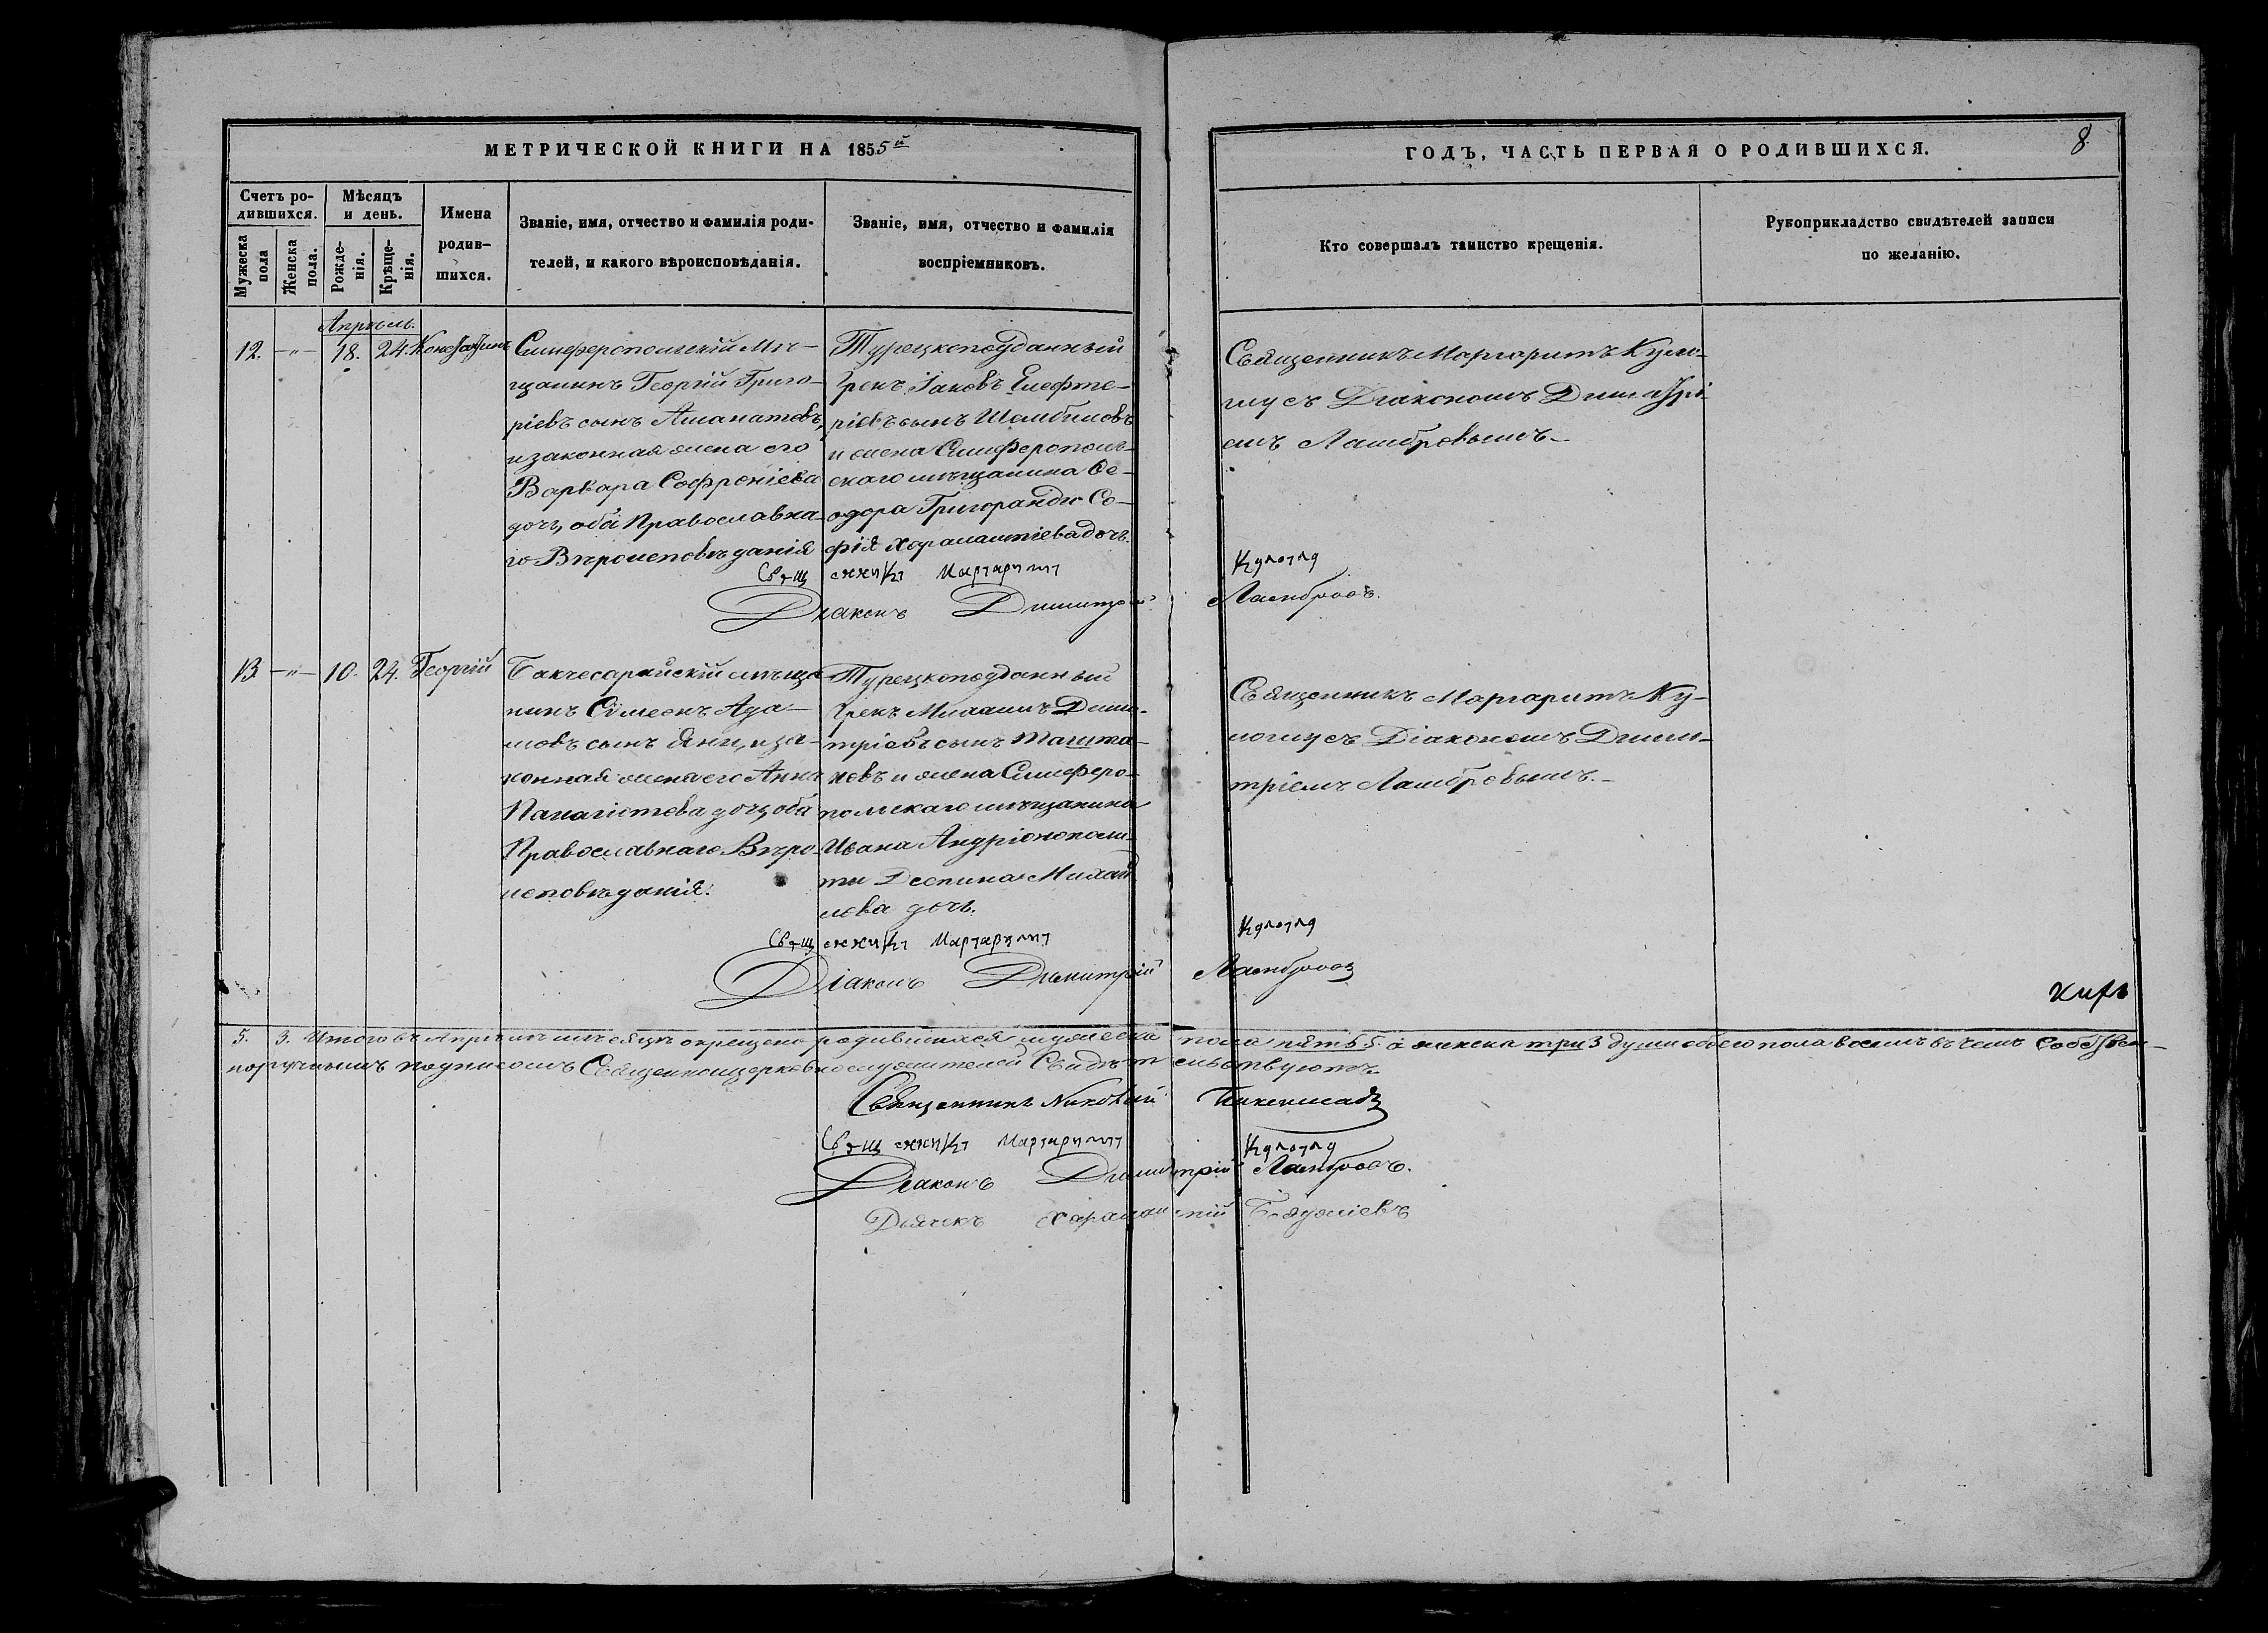 МЕТРИЧЕСКОЙ КНИГИ НА 1855й
ГОДЪ, ЧАСТЬ ПЕРВАЯ О РОДИВШИХСЯ.
8.
Счетъ ро-
дившихся.
Мѣсяцъ
и день.
Мужеска
пола
Женска
пола.
Рожде-
нія.
Крѣще-
нія.
Имена
родив-
шихся.
Званіе, имя, отчество и фамилія роди-
телей, и какого вѣроисповѣданія.
Званіе, имя, отчество и фамилія
воспріемниковъ.
Кто совершалъ таинство крещенія.
Рукоприкладство свидѣтелей записи
по желанію.
Апрѣль.
12. —"— 18. 24. Константинъ
Симферопольскій Мѣ-
щанинъ Георгій Григо-
ріевъ сынъ Аманатовъ,
и законная жена его
Варвара Софроніева
дочь, оба Православна-
го Вѣроисповѣданія
Турецкоподданный
Грекъ Іаковъ Елефте-
ріевъ сынъ
и жена Симферополь-
скаго мѣщанина Ѳе-
одора Григоранди Со-
фія Харалампіева дочь.
Священникъ Маргаритъ Кули-
гну съ Діакономъ Димитрі-
емъ Ламбровымъ.—
Священникъ Маргаритъ
Діаконъ Димитрій Ламбровъ.
13. —"— 10. 24. Георгій
Бакчесарайскій мѣща-
нинъ Сѵмеонъ Ада-
мовъ сынъ Яни, и за-
конная жена его Анна
Панагіотова дочь, оба
Православнаго Вѣро-
исповѣданія.
Турецкоподданный
Грекъ Дими-
тріевъ сынъ
и жена Симферо-
польскаго мѣщанина
Ивана Андріонополи-
ти Деспина Михай
лова дочь.
Священникъ Маргаритъ Ку-
съ Діакономъ Дими-
тріемъ Ламбровымъ.—
Священникъ Маргаритъ
Діаконъ Димитрій Ламбровъ
5. 3. Итого въ Апрѣлѣ мѣсяцѣ окрещено родившихся мужеска пола пять 5. а женска три 3 души обоего пола восемь въ чемъ Собствен-
норучнымъ подписомъ Священноцерковнослужителей Свидѣтельствуютъ.
Священникъ Николай
Священникъ Маргаритъ
Діаконъ Димитрій Ламбровъ.
Дьячекъ Харалампій